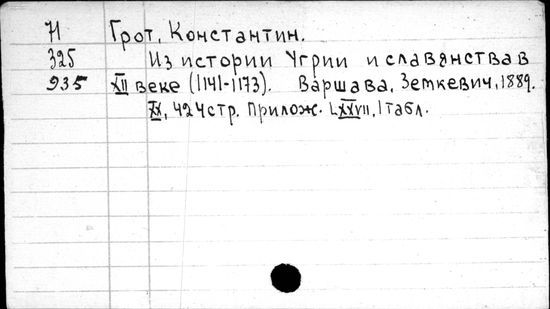 Н Грот, Константин.
325 Из истории Угрии и славянства в
935 XII веке (1141-1173). Варшава, Земкевич, 1889.
XX, 424 стр. Прилож. LXXVII, 1 табл.